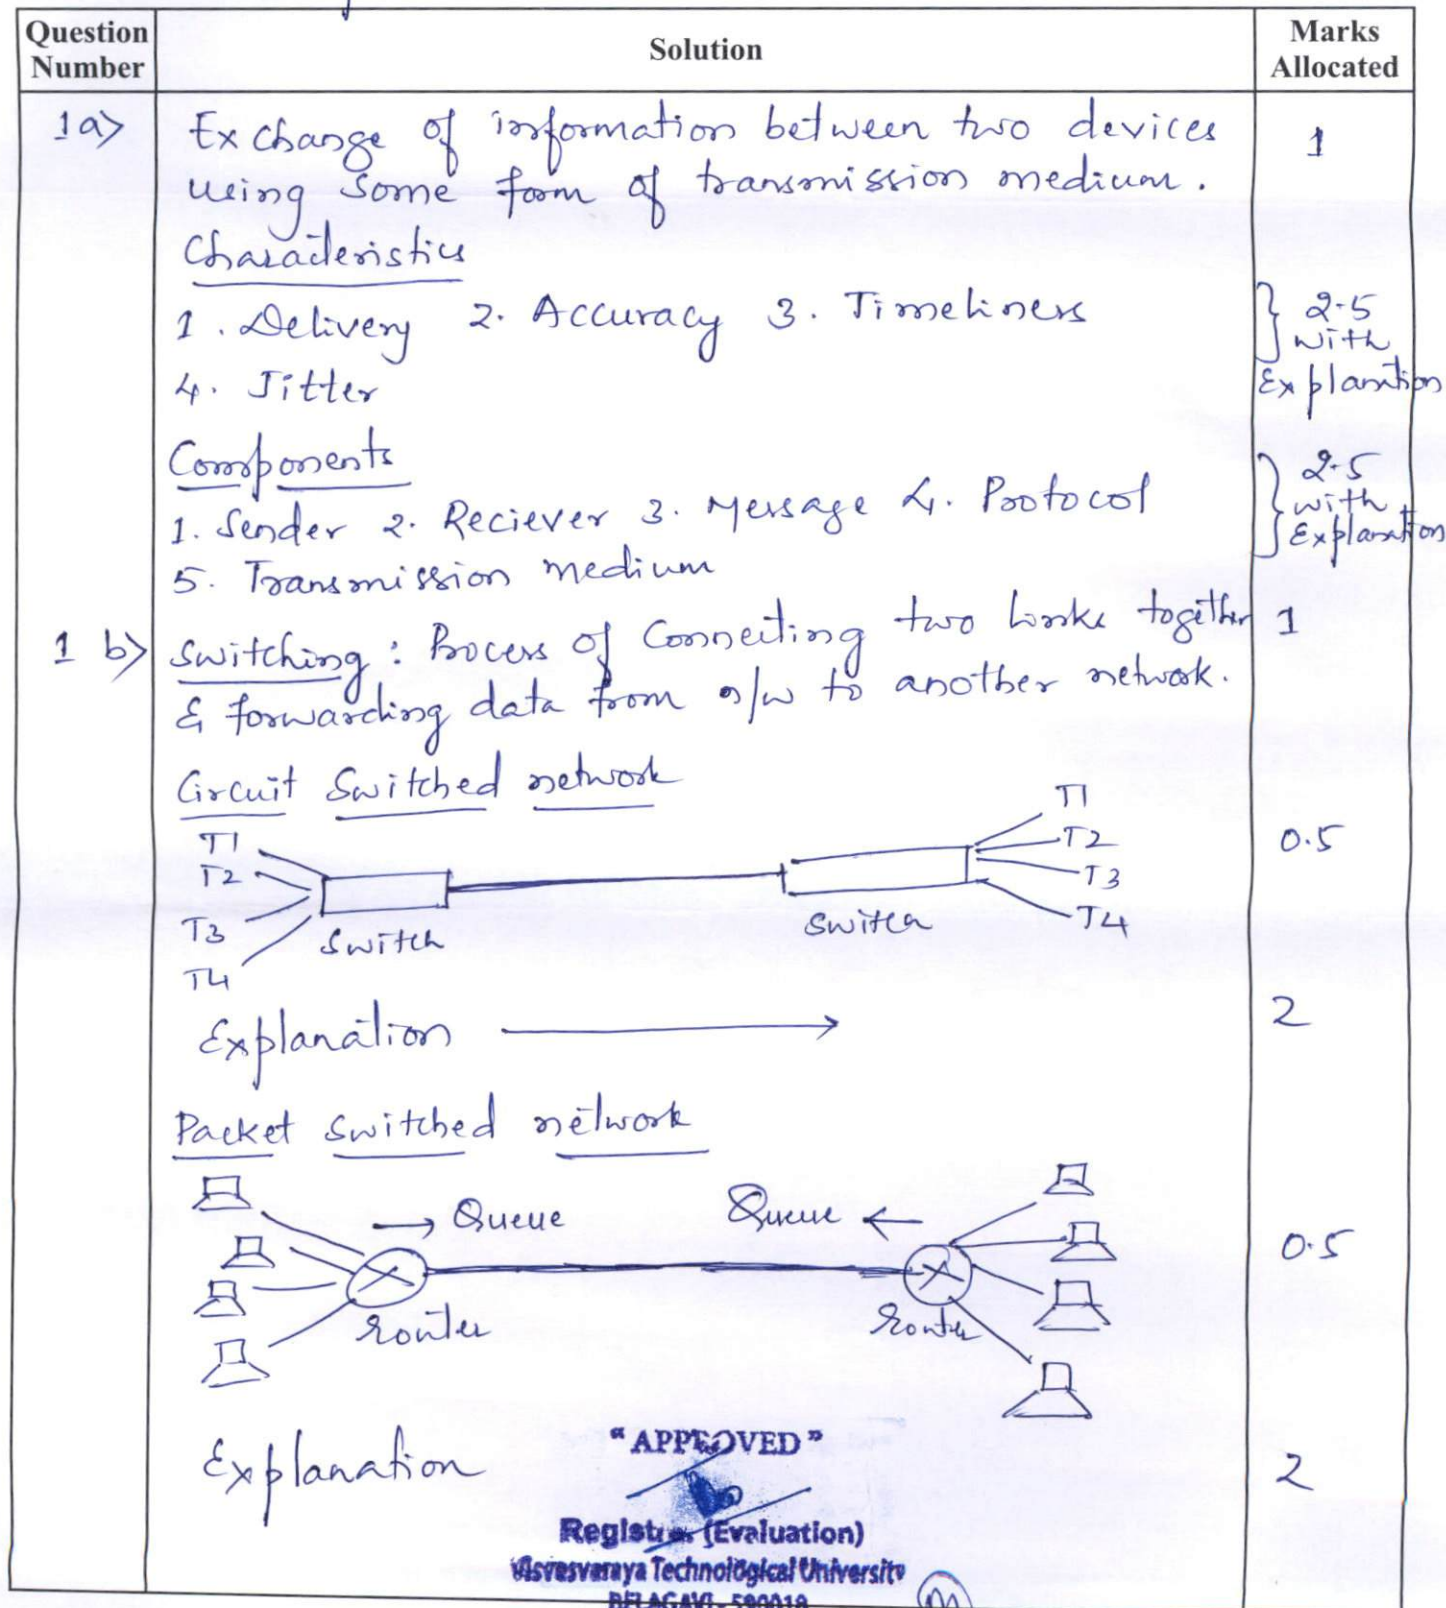 Question Number
Solution
Marks Allocated
1a> Exchange of information between two devices 1
using some form of transmission medium.
Characteristics
1. Delivery 2. Accuracy 3. Timeliness } 2.5 with Explanation
4. Jitter
Components
1. Sender 2. Reciever 3. Message 4. Protocol } 2.5 with Explanation
5. Transmission medium
1 b> Switching : Process of Connecting two links together 1
& forwarding data from n/w to another network.
Circuit Switched network
T1
T2
T3
T4
Switch
Switch
T1
T2
T3
T4
0.5
Explanation 2
Packet Switched network
Queue Queue
router router
0.5
Explanation 2
"APPROVED"
Registrar (Evaluation)
Visvesvaraya Technological University
BELAGAVI - 590018